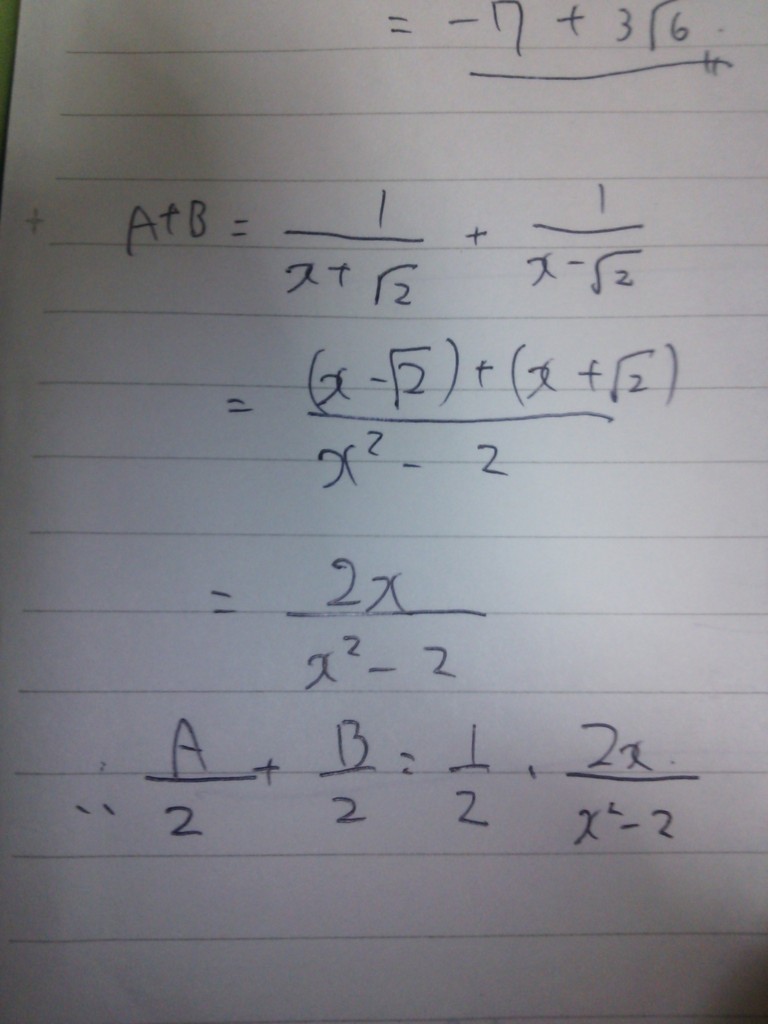 = -7 + 3√6.
A+B = 1/(x+√2) + 1/(x-√2)
= ((x-√2)+(x+√2))/(x²-2)
= 2x/(x²-2)
∴ A/2 + B/2 = 1/2 · 2x/(x²-2)